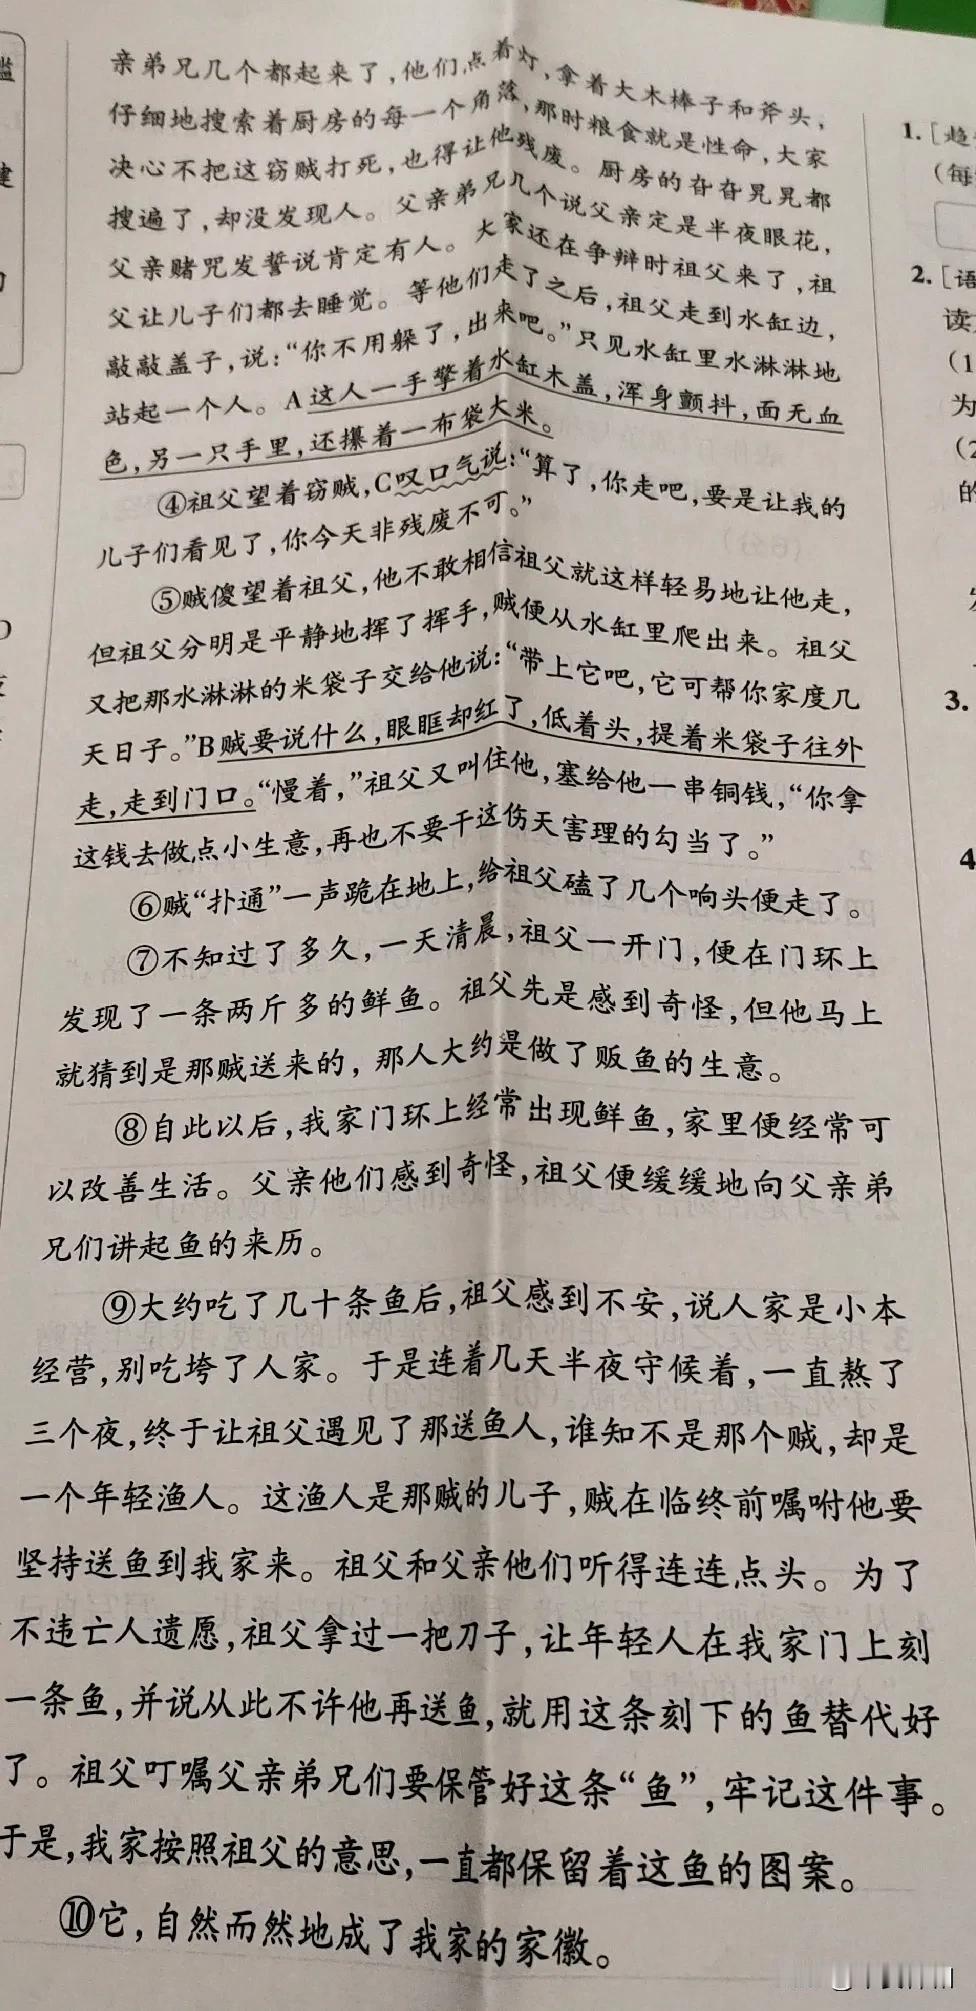 亲弟兄几个都起来了，他们点着灯，拿着大木棒子和斧头，
仔细地搜索着厨房的每一个角落，那时粮食就是性命，大家
决心不把这窃贼打死，也得让他残废。厨房的旮旮旯旯都
搜遍了，却没发现人。父亲弟兄几个说父亲定是半夜眼花，
父亲赌咒发誓说肯定有人。大家还在争辩时祖父来了，祖
父让儿子们都去睡觉。等他们走了之后，祖父走到水缸边，
敲敲盖子，说：“你不用躲了，出来吧。”只见水缸里水淋淋地
站起一个人。A这人一手擎着水缸木盖，浑身颤抖，面无血
色，另一只手里，还攥着一布袋大米。
④祖父望着窃贼，C叹口气说：“算了，你走吧，要是让我的
儿子们看见了，你今天非残废不可。”
⑤贼傻望着祖父，他不敢相信祖父就这样轻易地让他走，
但祖父分明是平静地挥了挥手，贼便从水缸里爬出来。祖父
又把那水淋淋的米袋子交给他说：“带上它吧，它可帮你家度几
天日子。”B贼要说什么，眼眶却红了，低着头，提着米袋子往外
走，走到门口。“慢着，”祖父又叫住他，塞给他一串铜钱，“你拿
这钱去做点小生意，再也不要干这伤天害理的勾当了。”
⑥贼“扑通”一声跪在地上，给祖父磕了几个响头便走了。
⑦不知过了多久，一天清晨，祖父一开门，便在门环上
发现了一条两斤多的鲜鱼。祖父先是感到奇怪，但他马上
就猜到是那贼送来的，那人大约是做了贩鱼的生意。
⑧自此以后，我家门环上经常出现鲜鱼，家里便经常可
以改善生活。父亲他们感到奇怪，祖父便缓缓地向父亲弟
兄们讲起鱼的来历。
⑨大约吃了几十条鱼后，祖父感到不安，说人家是小本
经营，别吃垮了人家。于是连着几天半夜守候着，一直熬了
三个夜，终于让祖父遇见了那送鱼人，谁知不是那个贼，却是
一个年轻渔人。这渔人是那贼的儿子，贼在临终前嘱咐他要
坚持送鱼到我家来。祖父和父亲他们听得连连点头。为了
不违亡人遗愿，祖父拿过一把刀子，让年轻人在我家门上刻
一条鱼，并说从此不许他再送鱼，就用这条刻下的鱼替代好
了。祖父叮嘱父亲弟兄们要保管好这条“鱼”，牢记这件事。
于是，我家按照祖父的意思，一直都保留着这鱼的图案。
⑩它，自然而然地成了我家的家徽。
1. [趋
(每
2. [语
读
(1
为
(2
的
3.
4